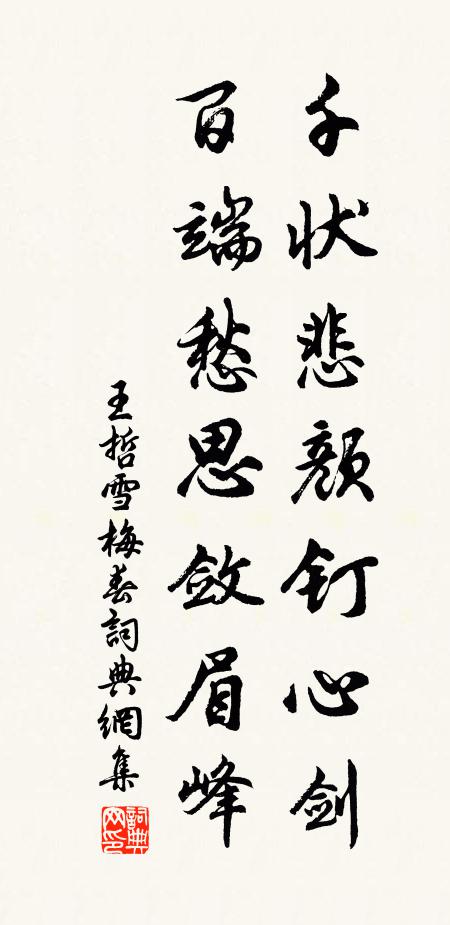 千状悲颜钉心剑
百端愁思敛眉峰
王哲雪梅春詞典網集
詞典网印